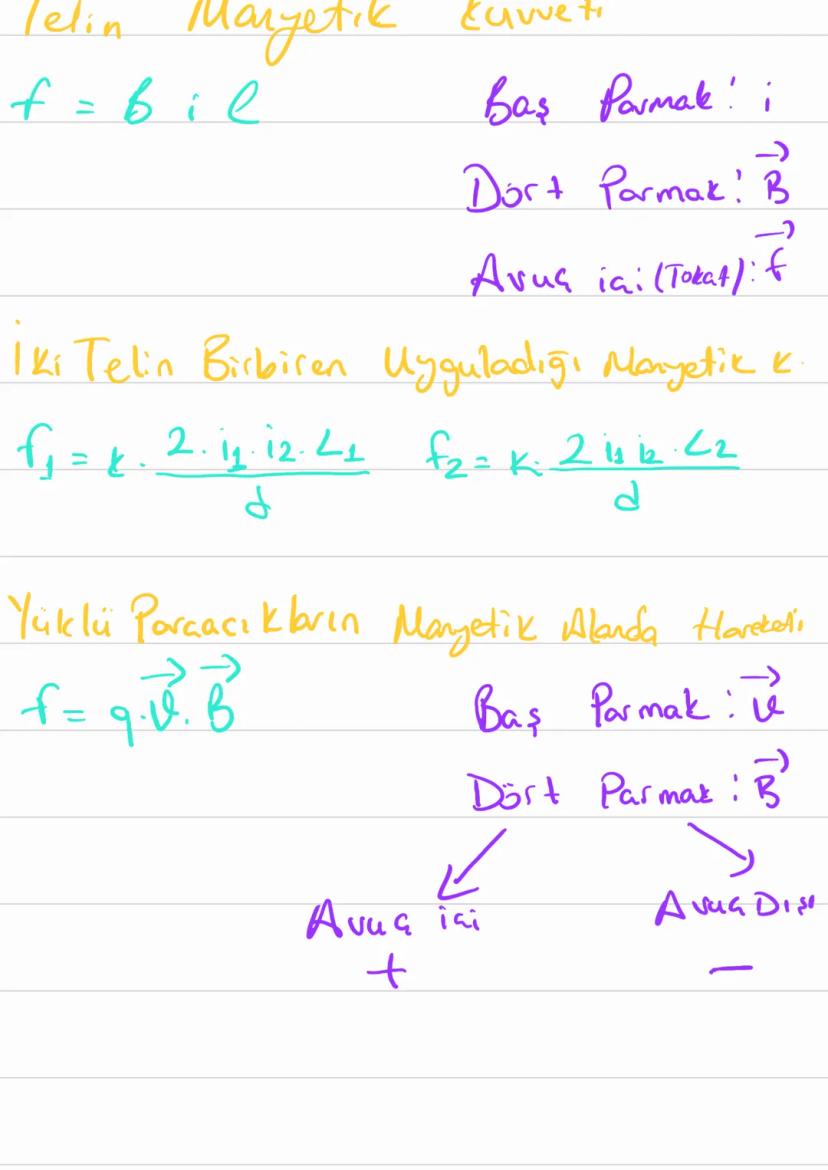 Telin Manyetik Kuvveti
f = B i l
Baş Parmak: i
Dört Parmak: B→
Avuç içi (Tokat): f→
İki Telin Birbiren Uyguladığı Manyetik K.
f₁ = k. 2. i₁. i₂. L₁ / d   f₂ = k. 2 i₁ i₂ . L₂ / d
Yüklü Parçacıkların Manyetik Alanda Hareketi
f = q. v→. B→
Baş Parmak: v→
Dört Parmak: B→
Avuç içi   Avuç Dışı
+   −